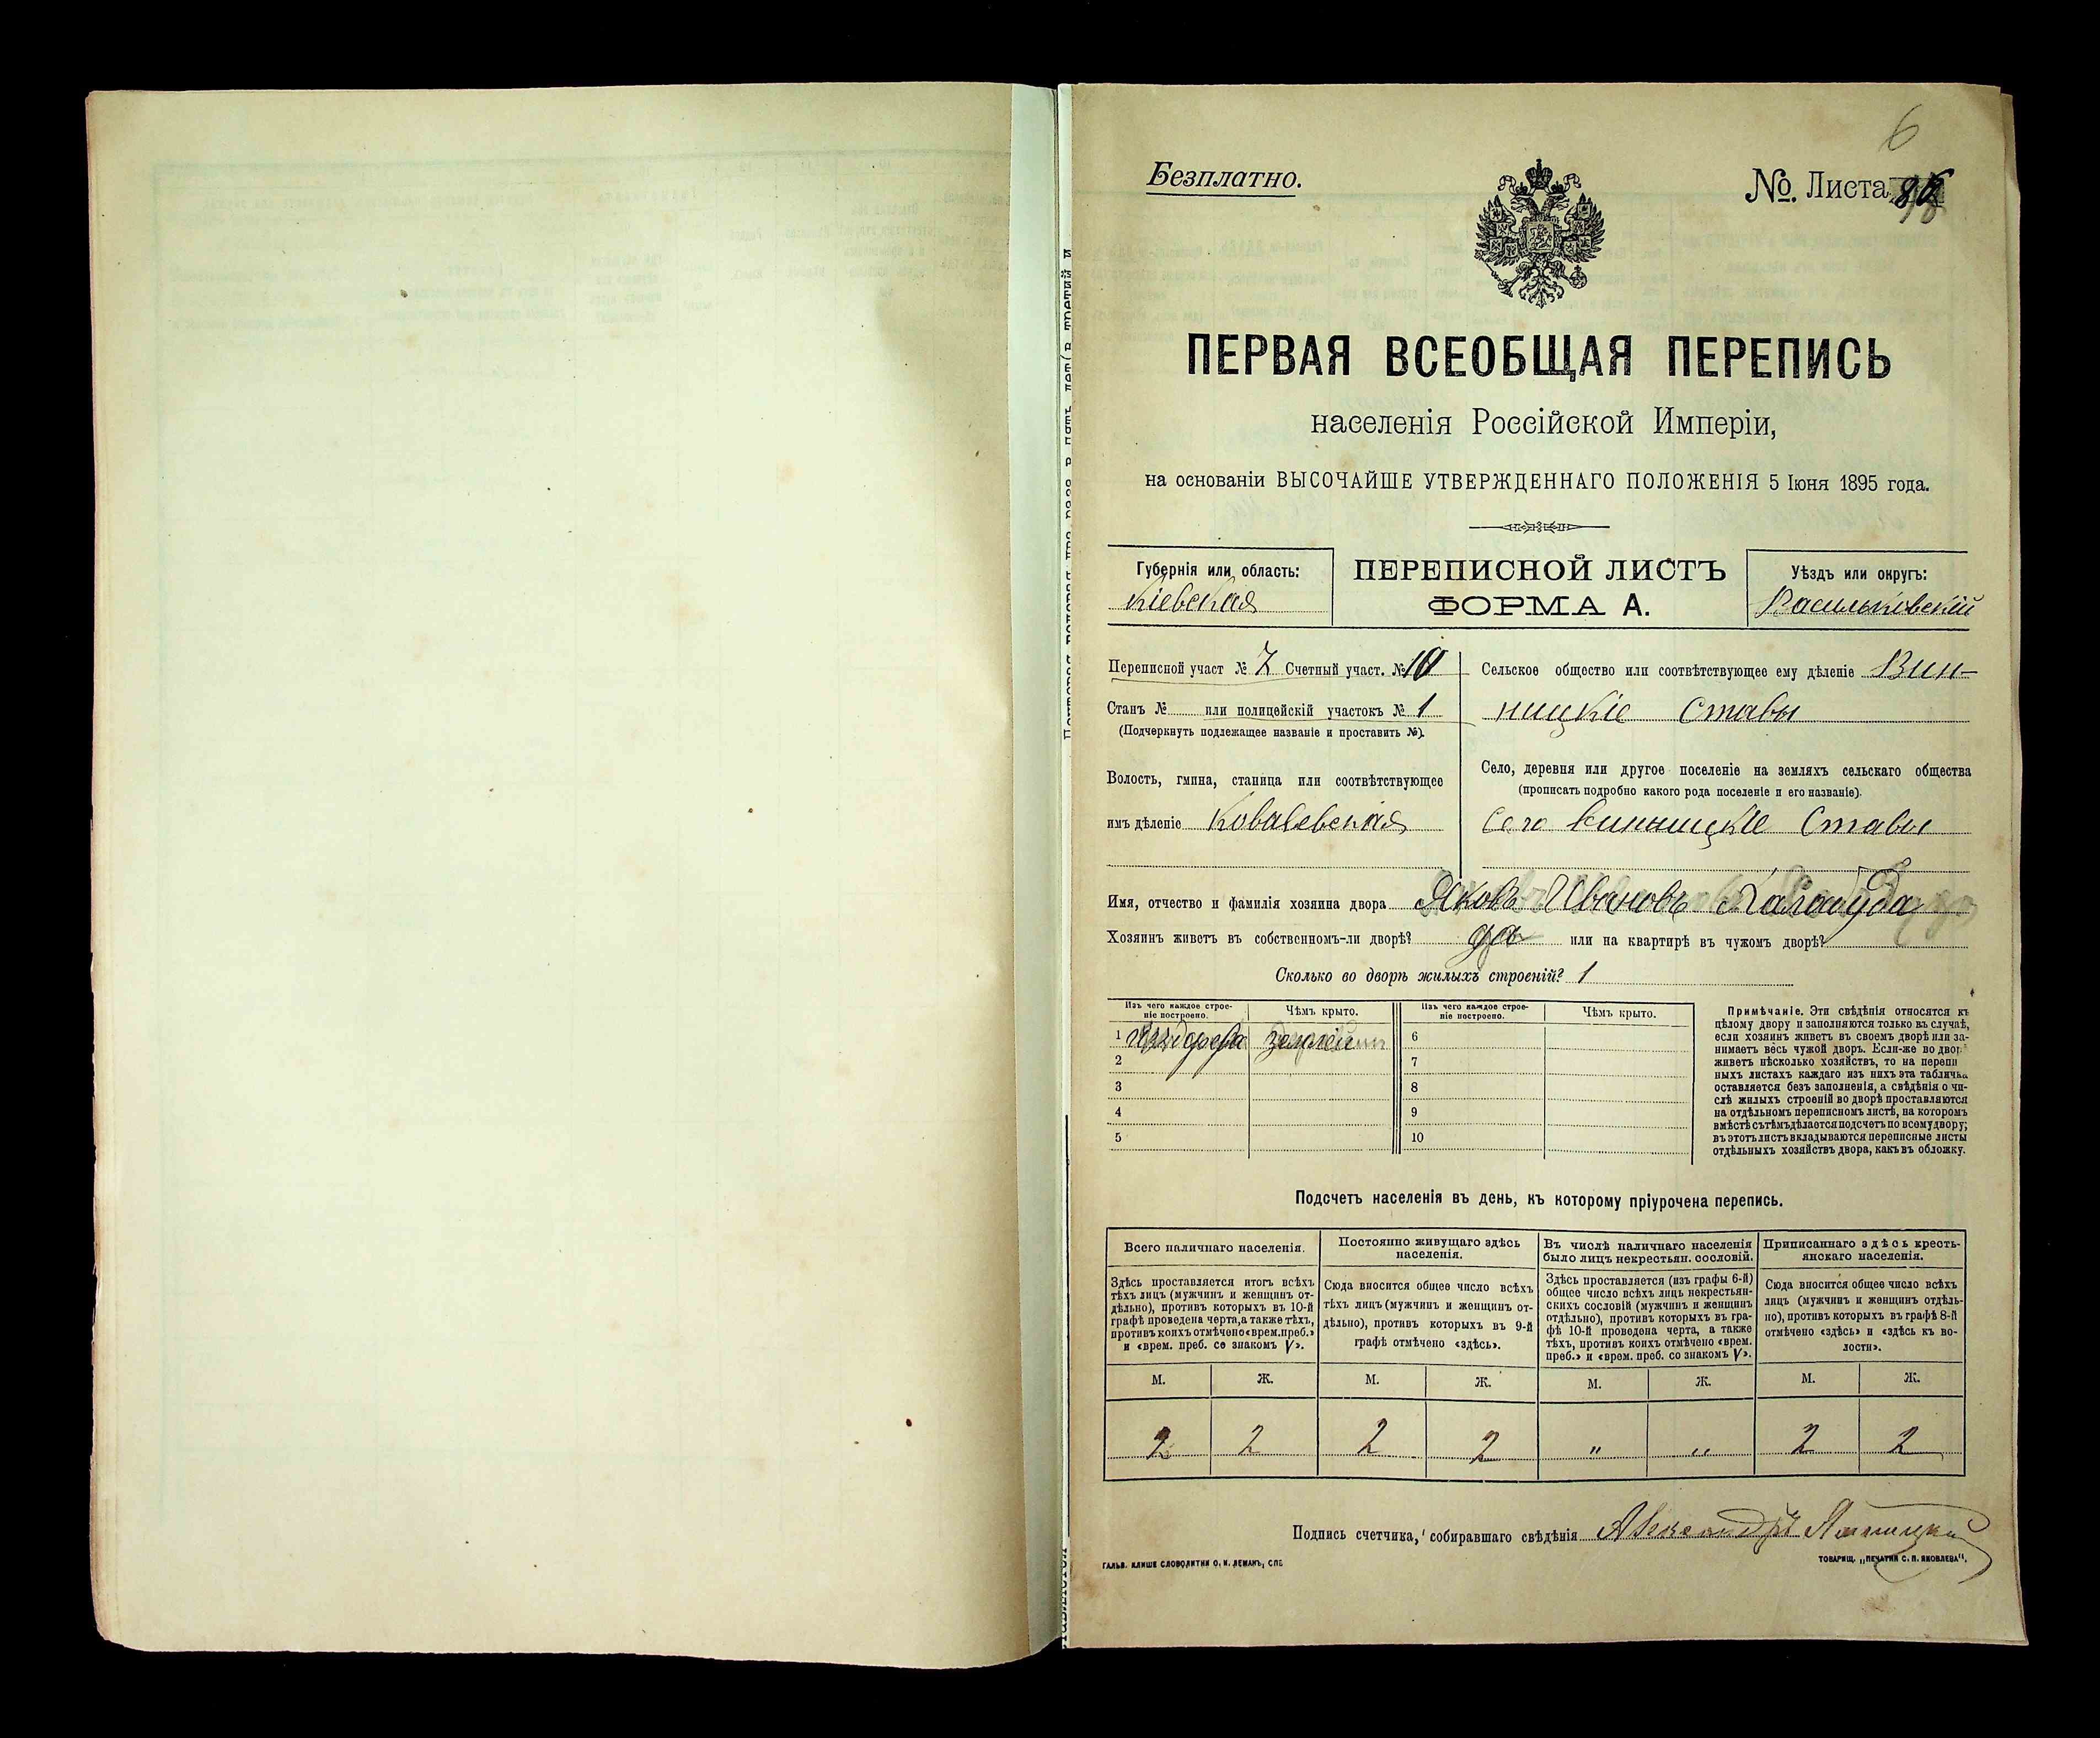 6
Безплатно.
№. Листа
ПЕРВАЯ ВСЕОБЩАЯ ПЕРЕПИСЬ
населенія Россійской Имперіи,
на основаніи ВЫСОЧАЙШЕ УТВЕРЖДЕННАГО ПОЛОЖЕНІЯ 5 Іюня 1895 года.
Губернія или область:
Кіевская
ПЕРЕПИСНОЙ ЛИСТЪ
ФОРМА А.
Уѣздъ или округъ:
Васильковскій
Переписной участ № 7 Счетный участ. № 10
Станъ № или полицейскій участокъ № 1
(Подчеркнуть подлежащее названіе и проставить №).
Волость, гмина, станица или соотвѣтствующее
имъ дѣленіе Ковалевская
Сельское общество или соотвѣтствующее ему дѣленіе Вин-
ницкіе Ставы
Село, деревня или другое поселеніе на земляхъ сельскаго общества
(прописать подробно какого рода поселеніе и его названіе).
Село Винницкіе Ставы
Имя, отчество и фамилія хозяина двора Яковъ Ивановъ
Хозяинъ живетъ въ собственномъ-ли дворѣ? да или на квартирѣ въ чужомъ дворѣ?
Сколько во дворѣ жилыхъ строеній? 1
Изъ чего каждое строе-
ніе построено.
Чѣмъ крыто.
Изъ чего каждое строе-
ніе построено.
Чѣмъ крыто.
1 землей 6
2 7
3 8
4 9
5 10
Примѣчаніе. Эти свѣдѣнія относятся къ
цѣлому двору и заполняются только въ случаѣ,
если хозяинъ живетъ въ своемъ дворѣ или за-
нимаетъ весь чужой дворъ. Если-же во дворѣ
живетъ нѣсколько хозяйствъ, то на перепи
ныхъ листахъ каждаго изъ нихъ эта табличка
оставляется безъ заполненія, а свѣдѣнія о чи-
слѣ жилыхъ строеній во дворѣ проставляются
на отдѣльномъ переписномъ листѣ, на которомъ
вмѣстѣ съ тѣмъ дѣлается подсчетъ по всему двору;
въ этотъ листъ вкладываются переписные листы
отдѣльныхъ хозяйствъ двора, какъ въ обложку.
Подсчетъ населенія въ день, къ которому пріурочена перепись.
Всего наличнаго населенія.
Здѣсь проставляется итогъ всѣхъ
тѣхъ лицъ (мужчинъ и женщинъ от-
дѣльно), противъ которыхъ въ 10-й
графѣ проведена черта, а также тѣхъ,
противъ коихъ отмѣчено «врем. преб.»
и «врем. преб. со знакомъ V».
Постоянно живущаго здѣсь
населенія.
Сюда вносится общее число всѣхъ
тѣхъ лицъ (мужчинъ и женщинъ от-
дѣльно), противъ которыхъ въ 9-й
графѣ отмѣчено «здѣсь».
Въ числѣ наличнаго населенія
было лицъ некрестьян. сословій.
Здѣсь проставляется (изъ графы 6-й)
общее число всѣхъ лицъ некрестьян-
скихъ сословій (мужчинъ и женщинъ
отдѣльно), противъ которыхъ въ гра-
фѣ 10-й проведена черта, а также
тѣхъ, противъ коихъ отмѣчено «врем.
преб.» и «врем. преб. со знакомъ V».
Приписаннаго здѣсь кресть-
янскаго населенія.
Сюда вносится общее число всѣхъ
лицъ (мужчинъ и женщинъ отдѣль-
но), противъ которыхъ въ графѣ 8-й
отмѣчено «здѣсь» и «здѣсь къ во-
лости».
М. Ж. М. Ж. М. Ж. М. Ж.
2 2 2 2 " " 2 2
Подпись счетчика, собиравшаго свѣдѣнія Александръ
ГАЛЬВ. КЛИШЕ СЛОВОЛИТНИ О. И. ЛЕМАНЪ, СПБ
ТОВАРИЩ. „ПЕЧАТНЯ С. П. ЯКОВЛЕВА".